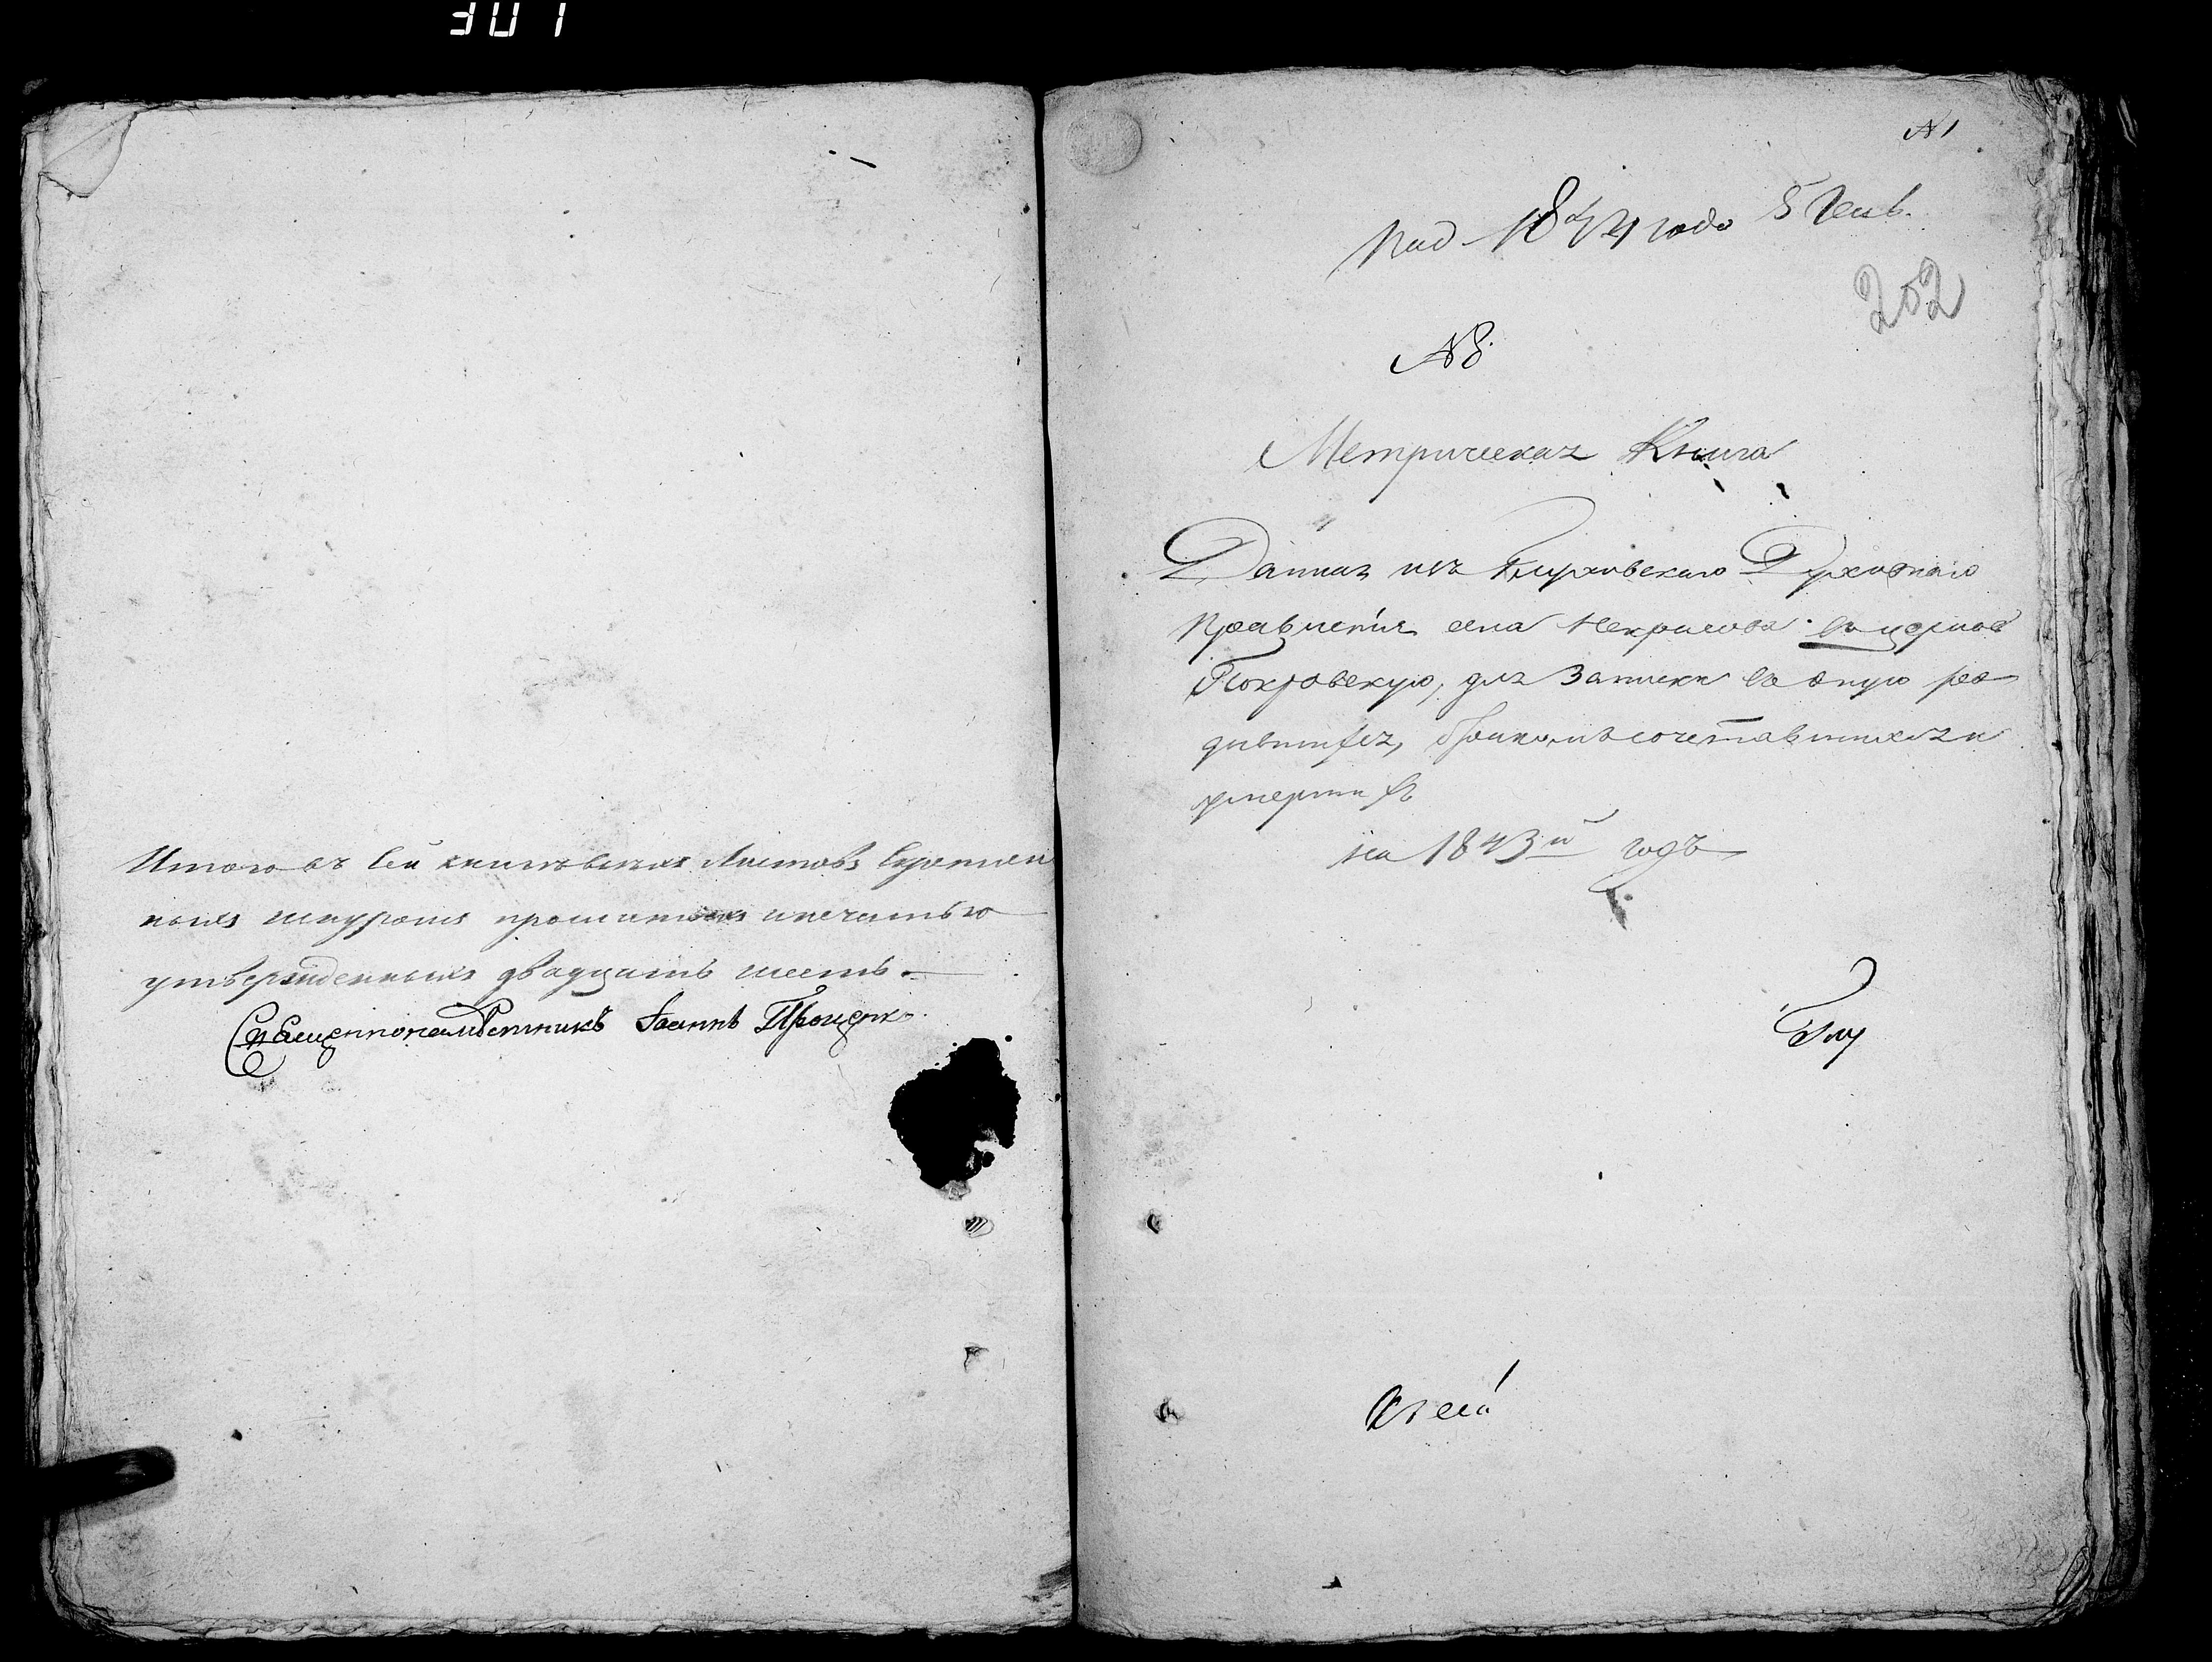 301
Итого въ сей книгѣ всѣхъ листовъ скрѣплен
ныхъ шнуромъ прошитыхъ и печатью
утвержденныхъ двадцать шесть.
Священнонамѣстникъ Іоаннъ Проценк
№ 1
Под. 1844 года 5 Генв.
202
№ 8
Метрическая Книга
Данная изъ Глуховскаго Духовнаго
Правленія села Некрасова въ церковь
Покровскую, для записки въ оную ро
дившихся, бракомъ сочетавшихся и
умершихъ
на 1843й годъ
Глу